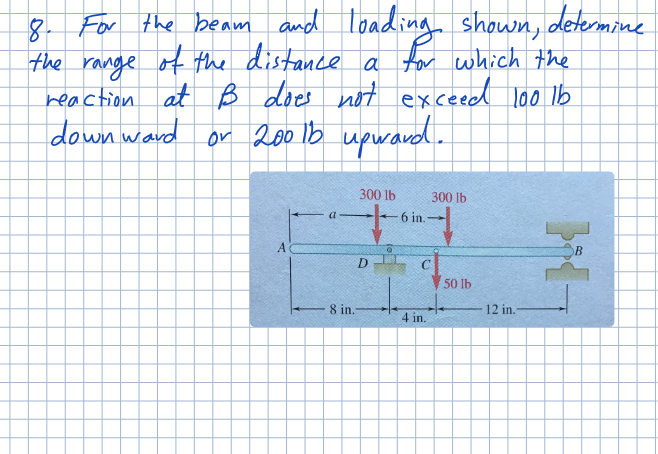 8. For the beam and loading shown, determine
the range of the distance a for which the
reaction at B does not exceed 100 lb
downward or 200 lb upward.
300 lb 300 lb
a 6 in.
A B
D C
50 lb
8 in. 12 in.
4 in.